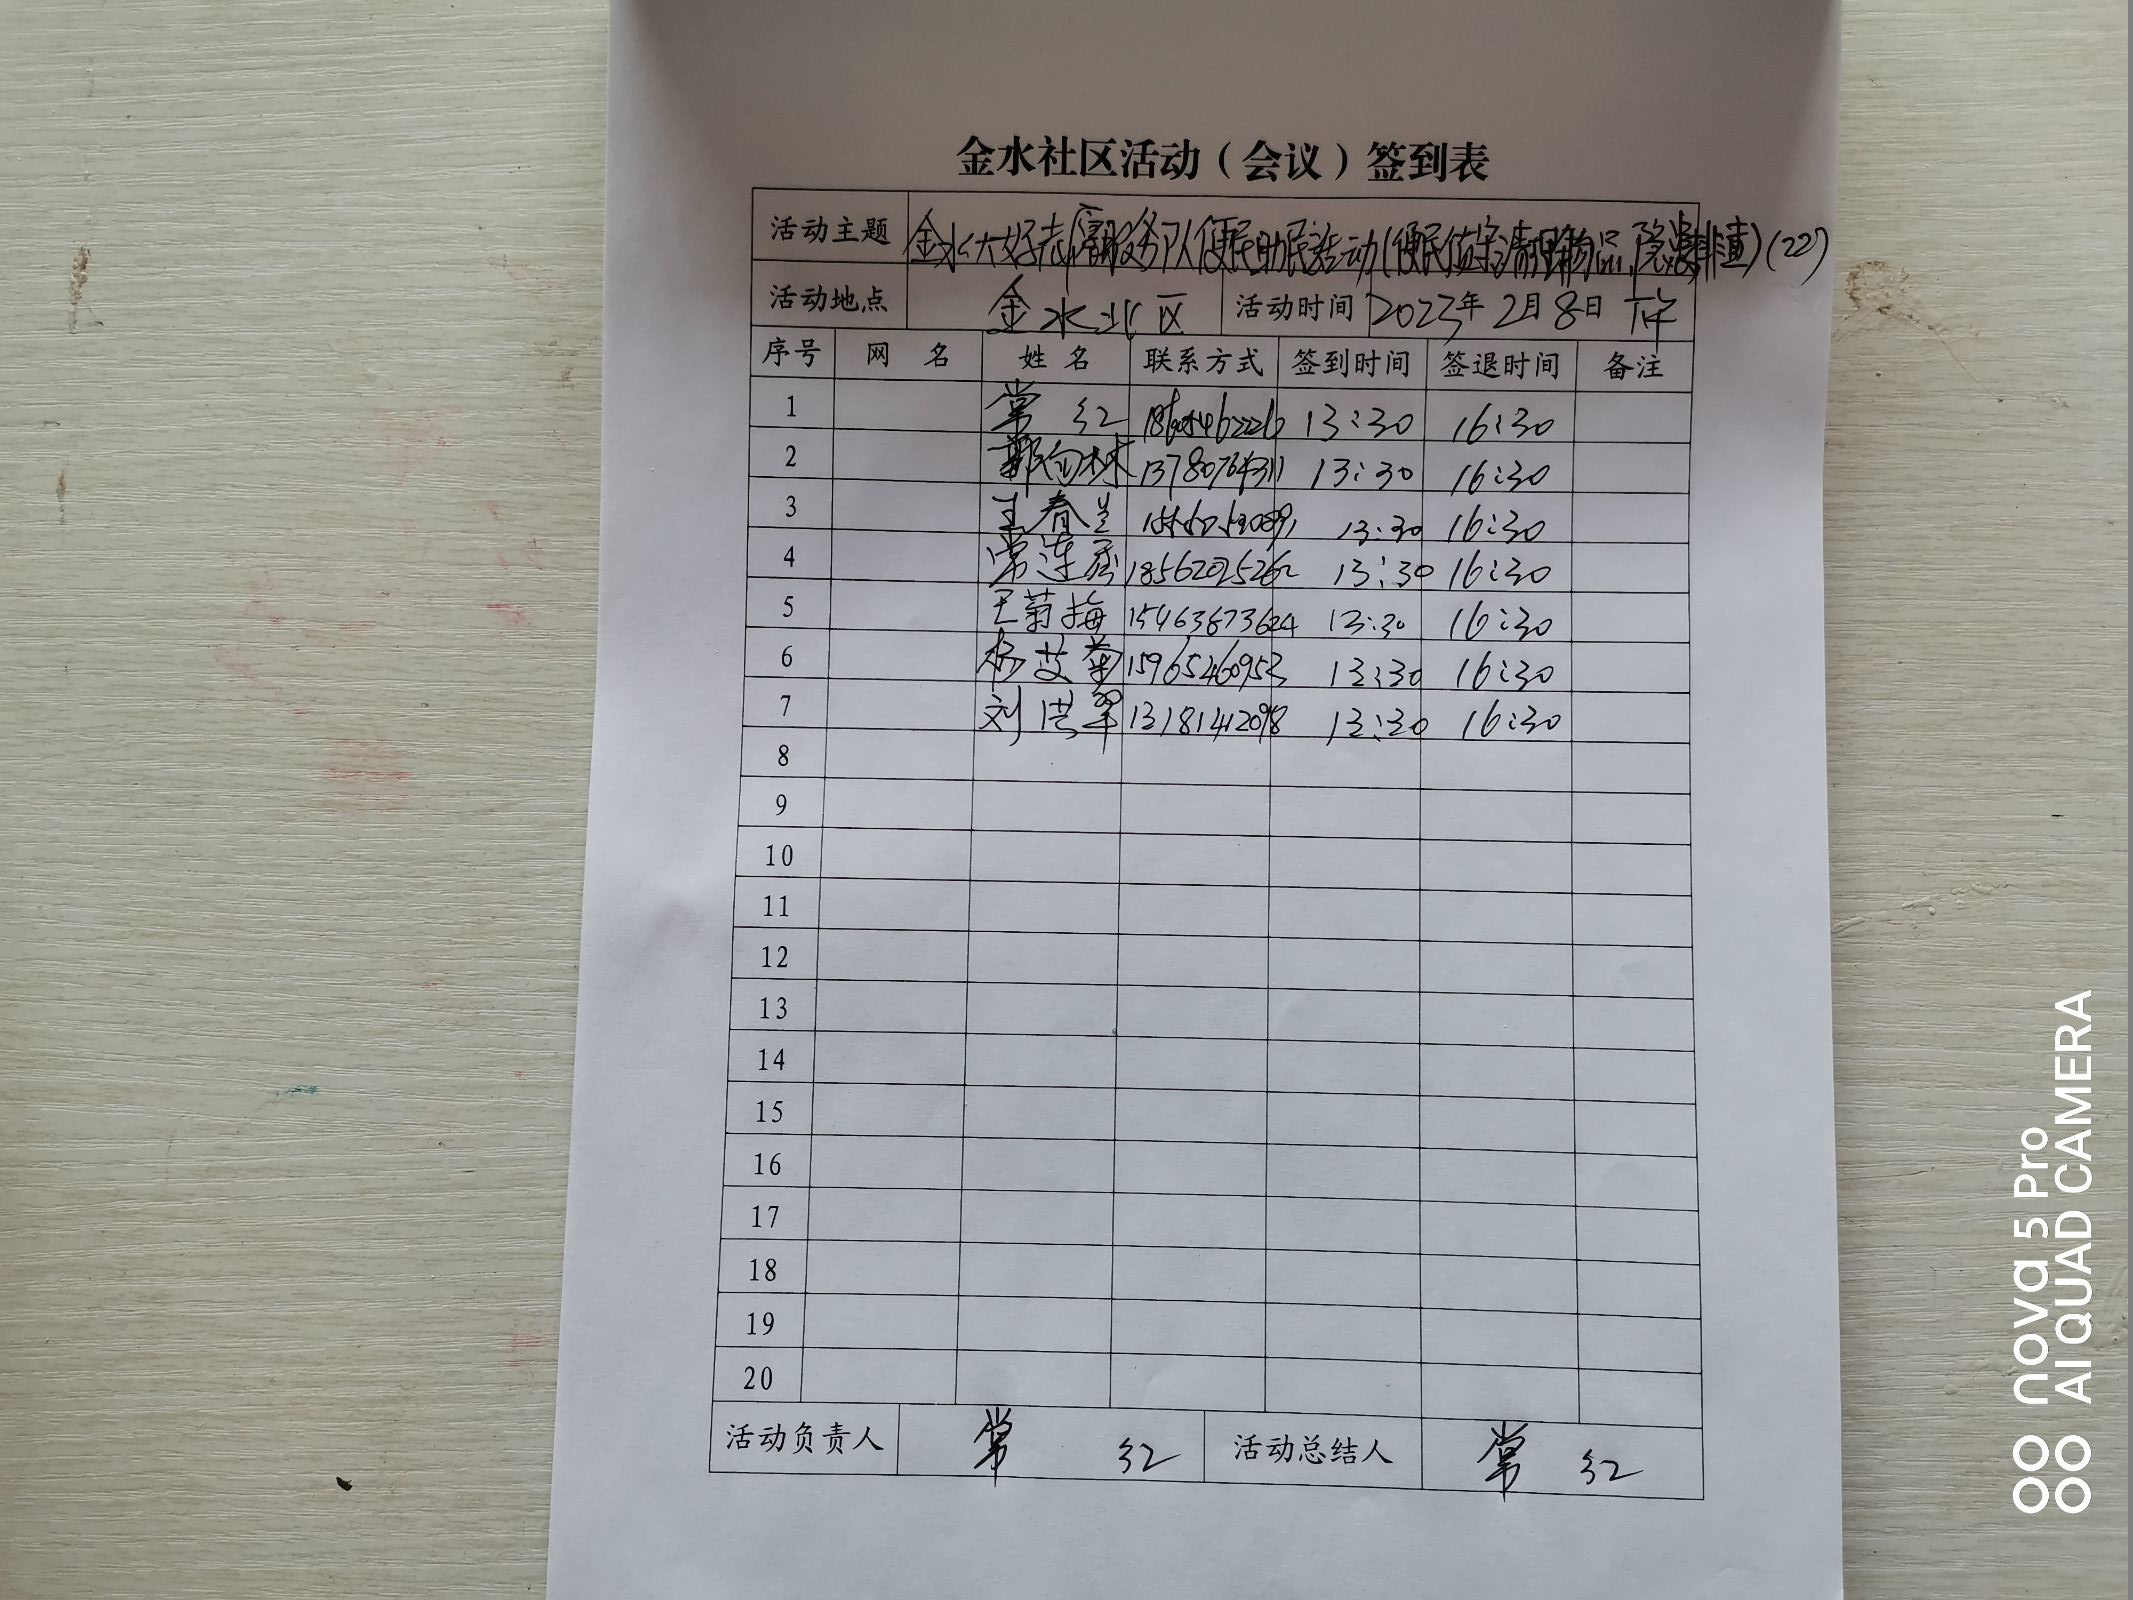 金水社区活动（会议）签到表
活动主题 金水大好志愿服务队便民助民活动(便民清理物品,隐患排查)(22)
活动地点 金水北区 活动时间 2023年2月8日 下午
序号 网 名 姓 名 联系方式 签到时间 签退时间 备注
1 常 红 13:30 16:30
2 13:30 16:30
3 王春兰 13:30 16:30
4 常连 18562025262 13:30 16:30
5 王菊梅 13:30 16:30
6 杨艾华 15965260953 13:30 16:30
7 刘洪翠 13181412098 13:30 16:30
8
9
10
11
12
13
14
15
16
17
18
19
20
活动负责人 常 红 活动总结人 常 红
nova 5 Pro
AI QUAD CAMERA